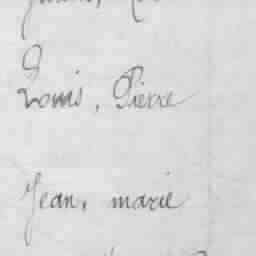 Louis, Pierre
Jean, marie